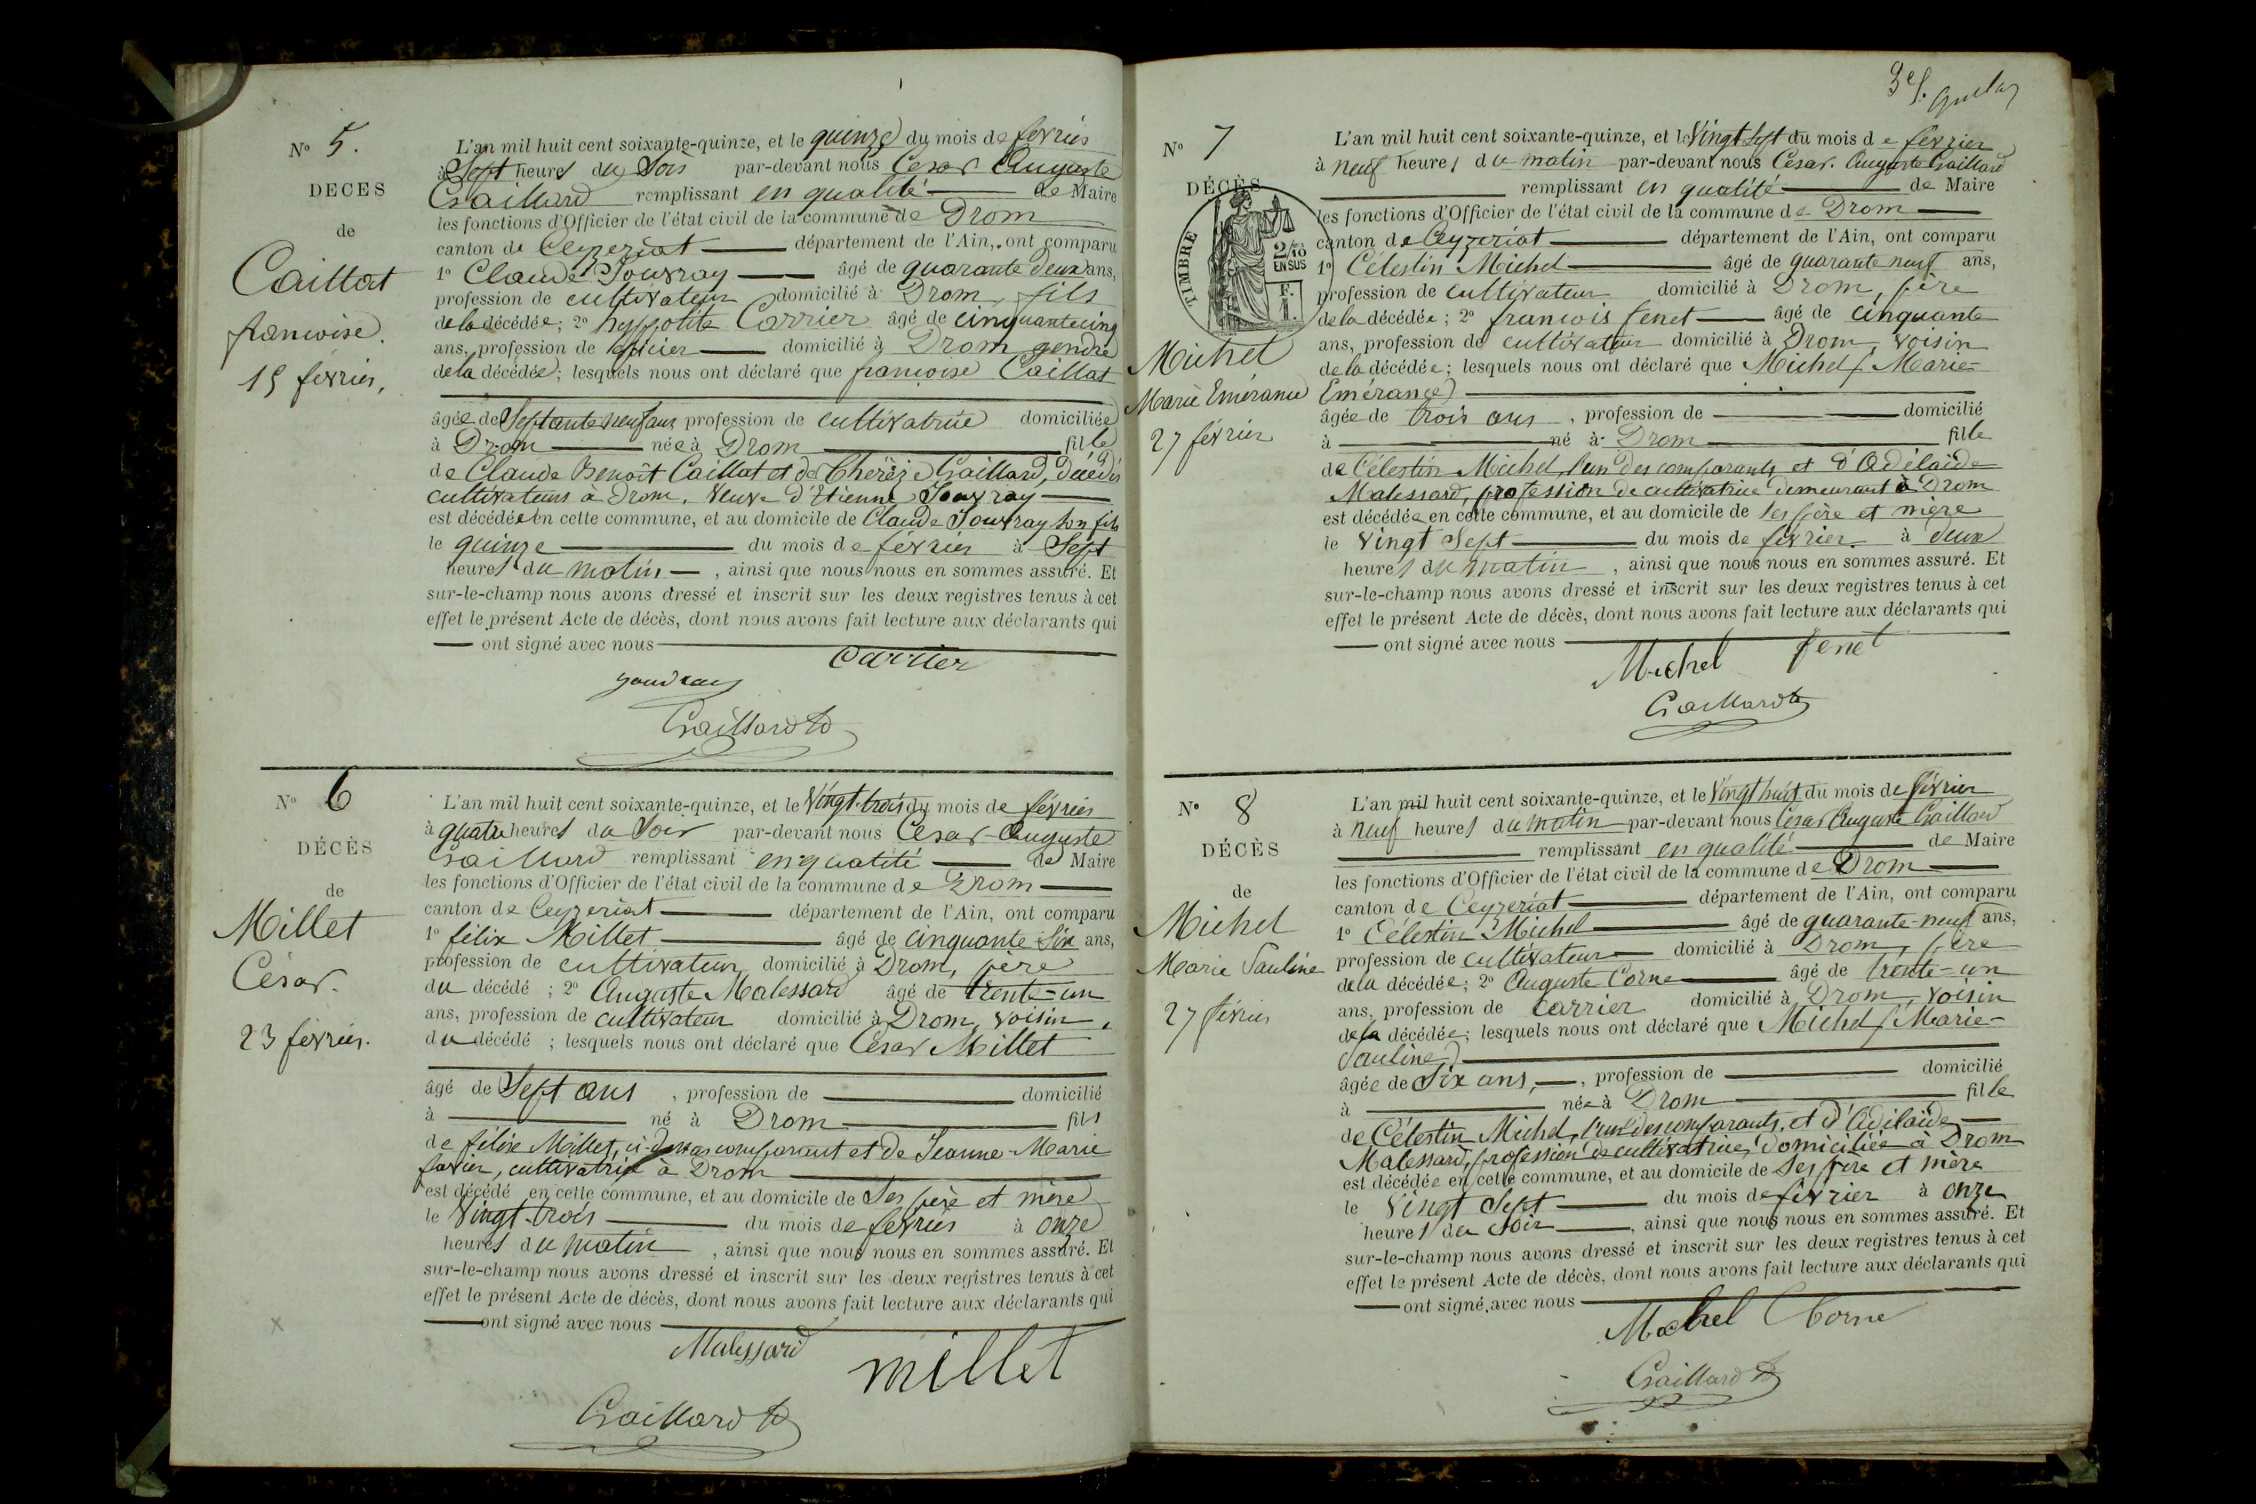 N° 5.
DECES
de
Caillat
francoise.
15 février,
L'an mil huit cent soixante-quinze, et le quinze du mois de février
à Sept heures du Soir par-devant nous Cesar Auguste
Gaillard remplissant en qualité de Maire
les fonctions d'Officier de l'état civil de la commune de Drom
canton de Ceyzeriat département de l'Ain, ont comparu
1° Claude Jouvray âgé de quarante deux ans,
profession de cultivateur domicilié à Drom, fils
de la décédée; 2° hyppolite Carrier âgé de cinquante cinq
ans, profession de domicilié à Drom gendre
de la décédée; lesquels nous ont déclaré que francoise Caillat
âgée de Septante neuf ans profession de cultivatrice domiciliée
à Drom née à Drom fille
de Claude Benoit Caillat et de Gaillard, décédés
cultivateurs à Drom, Veuve d'Etienne Jouvray
est décédée en cette commune, et au domicile de Claude Jouvray son fils
le quinze du mois de février à Sept
heures du matin, ainsi que nous nous en sommes assuré. Et
sur-le-champ nous avons dressé et inscrit sur les deux registres tenus à cet
effet le présent Acte de décès, dont nous avons fait lecture aux déclarants qui
ont signé avec nous
Carrier
Gaillard
N° 6
DÉCÈS
de
Millet
César.
23 février.
L'an mil huit cent soixante-quinze, et le Vingt-trois du mois de février
à quatre heures du Soir par-devant nous Cesar Auguste
Gaillard remplissant en qualité de Maire
les fonctions d'Officier de l'état civil de la commune de Drom
canton de Ceyzeriat département de l'Ain, ont comparu
1° félix Millet âgé de cinquante Six ans,
profession de cultivateur domicilié à Drom, père
du décédé; 2° Auguste Malessard âgé de trente-un
ans, profession de cultivateur domicilié à Drom, voisin,
du décédé; lesquels nous ont déclaré que César Millet
âgé de Sept ans, profession de domicilié
à né à Drom fils
de félix Millet, ci-dessus comparant et de Jeanne-Marie
favier, cultivatrice à Drom
est décédé en cette commune, et au domicile de Ses père et mère
le Vingt-trois du mois de février à onze
heures du matin, ainsi que nous nous en sommes assuré. Et
sur-le-champ nous avons dressé et inscrit sur les deux registres tenus à cet
effet le présent Acte de décès, dont nous avons fait lecture aux déclarants qui
ont signé avec nous
Malessard
millet
Gaillard
3e f.
N° 7
DÉCÈS
TIMBRE
2/10
EN SUS
F.
1.
Michel
Marie Emérance
27 février
L'an mil huit cent soixante-quinze, et le Vingt Sept du mois de février
à neuf heures du matin par-devant nous César. Auguste Gaillard
remplissant en qualité de Maire
les fonctions d'Officier de l'état civil de la commune de Drom
canton de Ceyzeriat département de l'Ain, ont comparu
1° Célestin Michel âgé de quarante neuf ans,
profession de cultivateur domicilié à Drom, père
de la décédée; 2° francois fenet âgé de cinquante
ans, profession de cultivateur domicilié à Drom, voisin
de la décédée; lesquels nous ont déclaré que Michel (Marie-
Emérance)
âgée de trois ans, profession de domicilié
à né à Drom fille
de Célestin Michel, l'un des comparants et d'Adélaïde
Malessard, profession de cultivatrice demeurant à Drom
est décédée en cette commune, et au domicile de ses père et mère
le Vingt Sept du mois de février. à deux
heures du matin, ainsi que nous nous en sommes assuré. Et
sur-le-champ nous avons dressé et inscrit sur les deux registres tenus à cet
effet le présent Acte de décès, dont nous avons fait lecture aux déclarants qui
ont signé avec nous
Michel fenet
Gaillard
N° 8
DÉCÈS
de
Michel
Marie Pauline
27 février
L'an mil huit cent soixante-quinze, et le Vingt huit du mois de février
à neuf heures du matin par-devant nous César Auguste Gaillard
remplissant en qualité de Maire
les fonctions d'Officier de l'état civil de la commune de Drom
canton de Ceyzériat département de l'Ain, ont comparu
1° Célestin Michel âgé de quarante-neuf ans,
profession de cultivateur domicilié à Drom, père
de la décédée; 2° Auguste Corne âgé de trente-un
ans, profession de carrier domicilié à Drom, voisin
de la décédée; lesquels nous ont déclaré que Michel (Marie-
Pauline)
âgée de Six ans, profession de domicilié
à née à Drom fille
de Célestin Michel, l'un des comparants, et d'Adélaïde
Malessard, profession de cultivatrice, domiciliée à Drom
est décédée en cette commune, et au domicile de Ses père et mère
le Vingt Sept du mois de février à onze
heures du Soir, ainsi que nous nous en sommes assuré. Et
sur-le-champ nous avons dressé et inscrit sur les deux registres tenus à cet
effet le présent Acte de décès, dont nous avons fait lecture aux déclarants qui
ont signé avec nous
Michel Corne
Gaillard